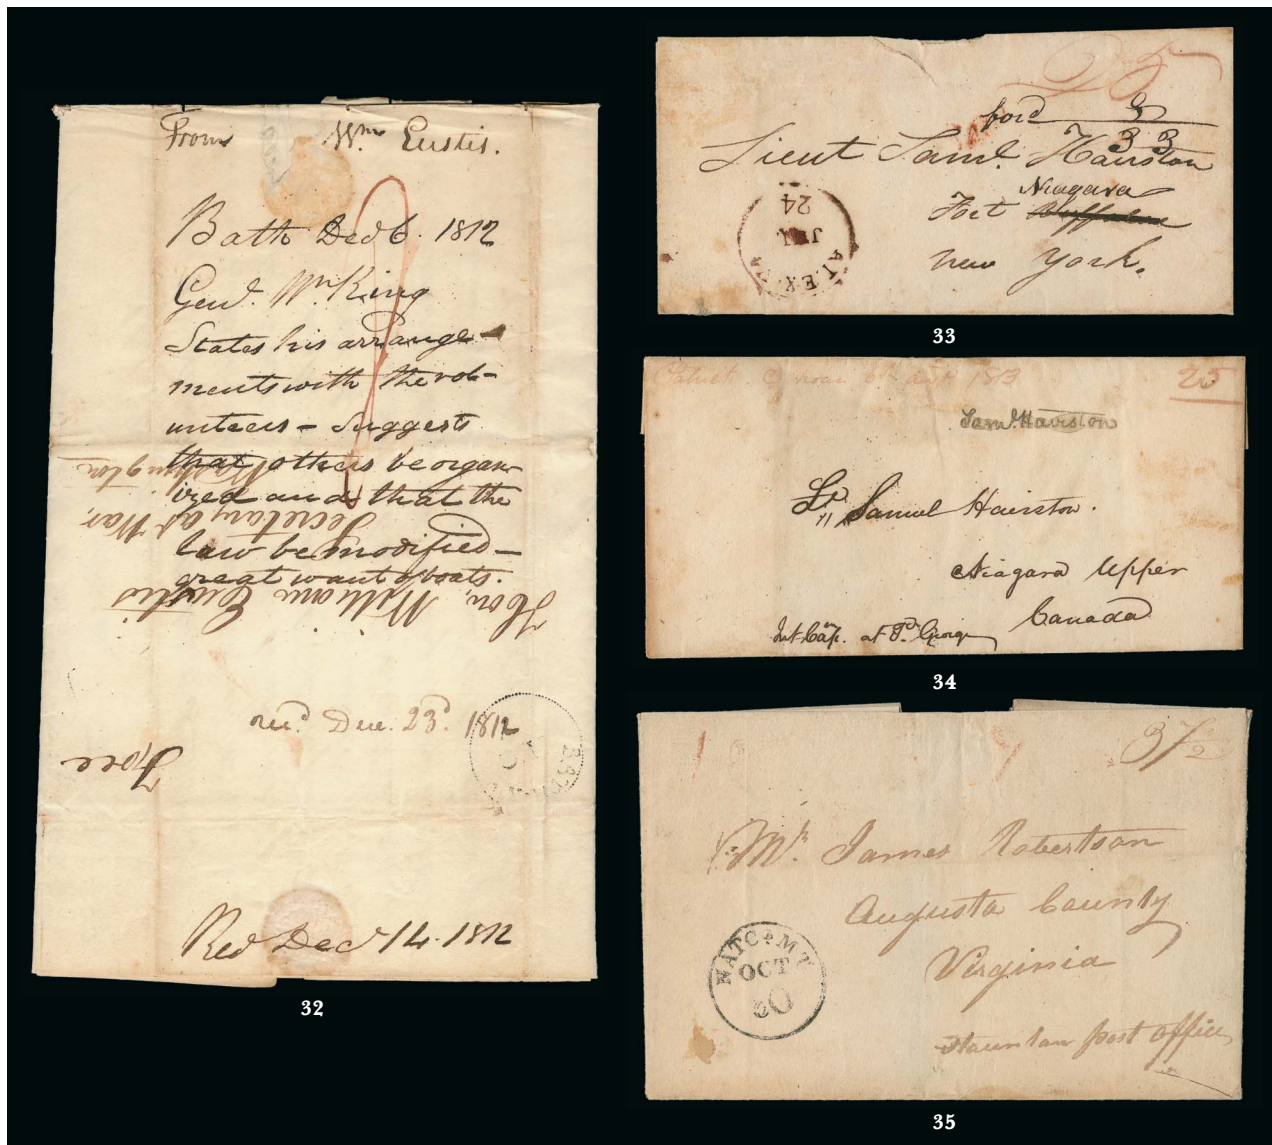 From Wm Eustis.
Bath Decr 6. 1812
Genl. Wm King
States his arrange-
ments with the vol-
unteers - suggests
that others be organ-
ized and that the
law be modified -
great want of boats.
Hon. William Eustis
Secretary at War,
Washington
recd Dec. 23d. 1812
BATH
Free
Recd Decr 14. 1812
32
25
ford 8
33
Lieut Saml. Hairston
Niagara
Fort Buffaloe
New York.
ALEX. VA
JUL
24
33
1813
25
Saml. Hairston
Lt. Samuel Hairston.
Niagara Upper
Canada
at Ft. George
34
37/2
Mr. James Robertson
Augusta County
Virginia
Staunton post office
NATC? MY
OCT
30
35